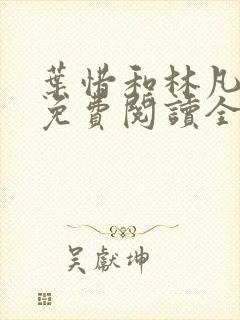 葉惜和林凡
免費閱讀全
吳獻坤